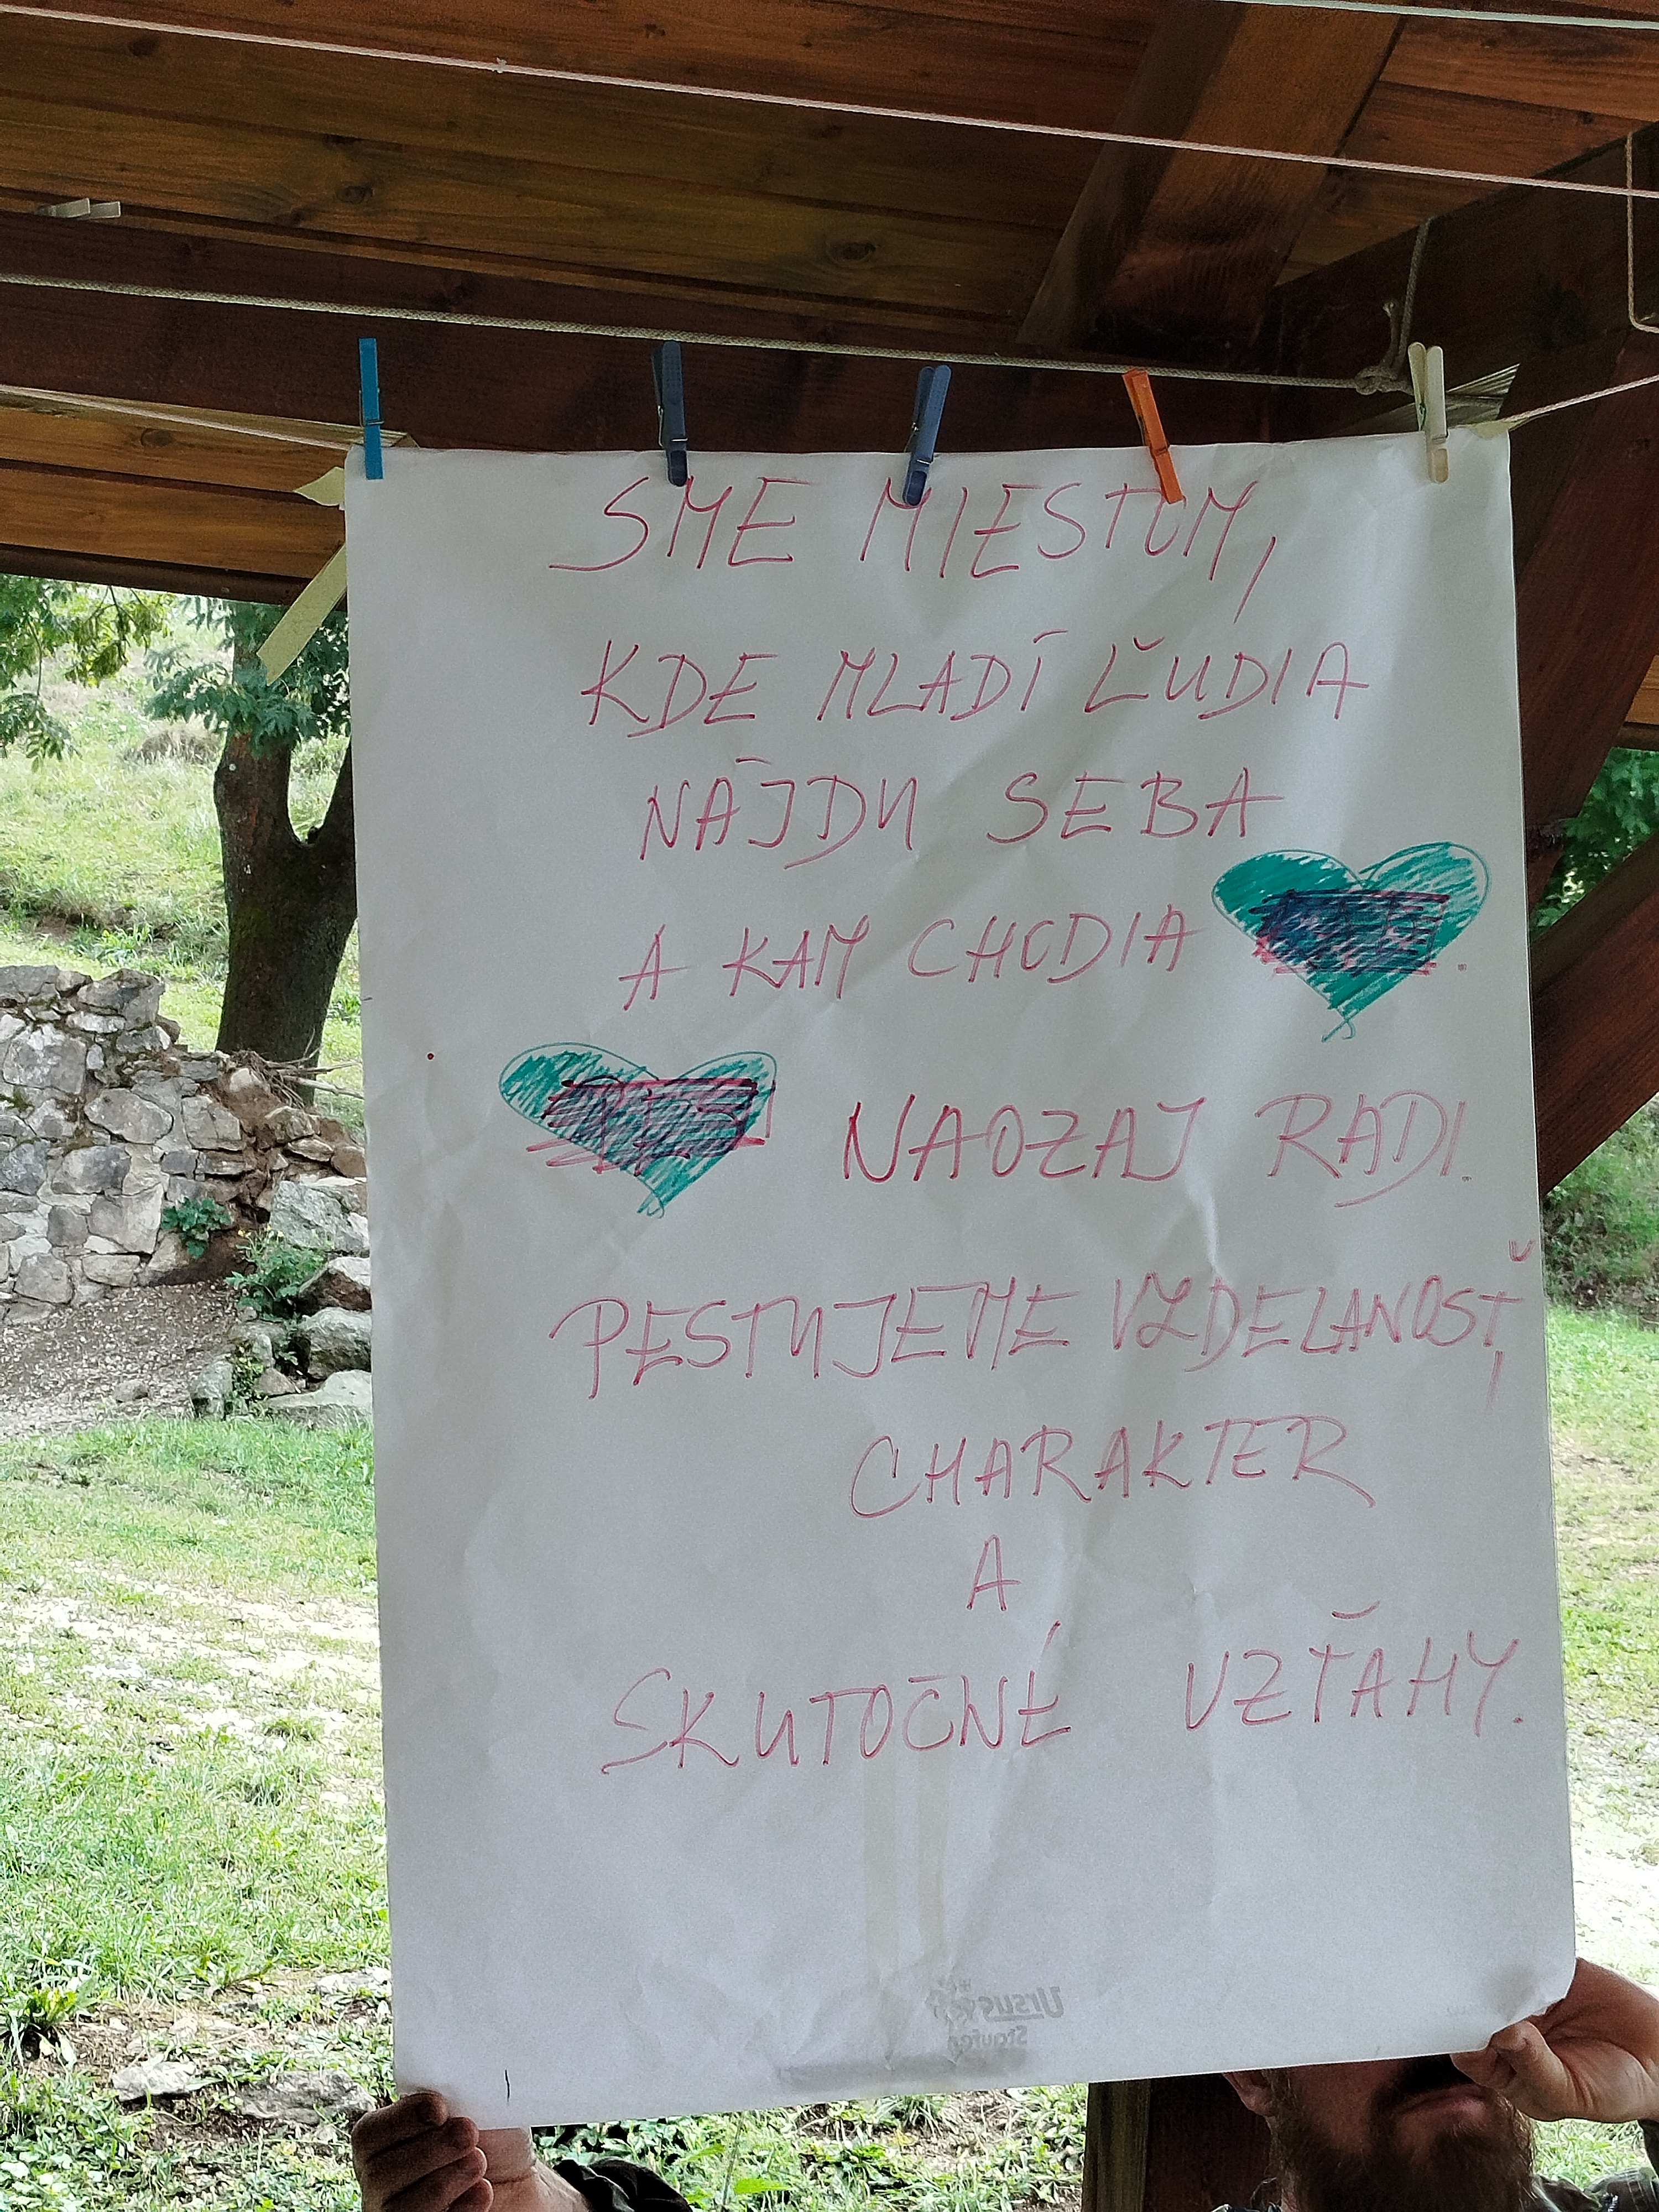 SME MIESTOM,
KDE MLADÍ ĽUDIA
NÁJDU SEBA
A KAM CHODIA .
NAOZAJ RADI.
PESTUJEME VZDELANOSŤ,
CHARAKTER
A
SKUTOČNÉ VZŤAHY.
Ursus
Staufen